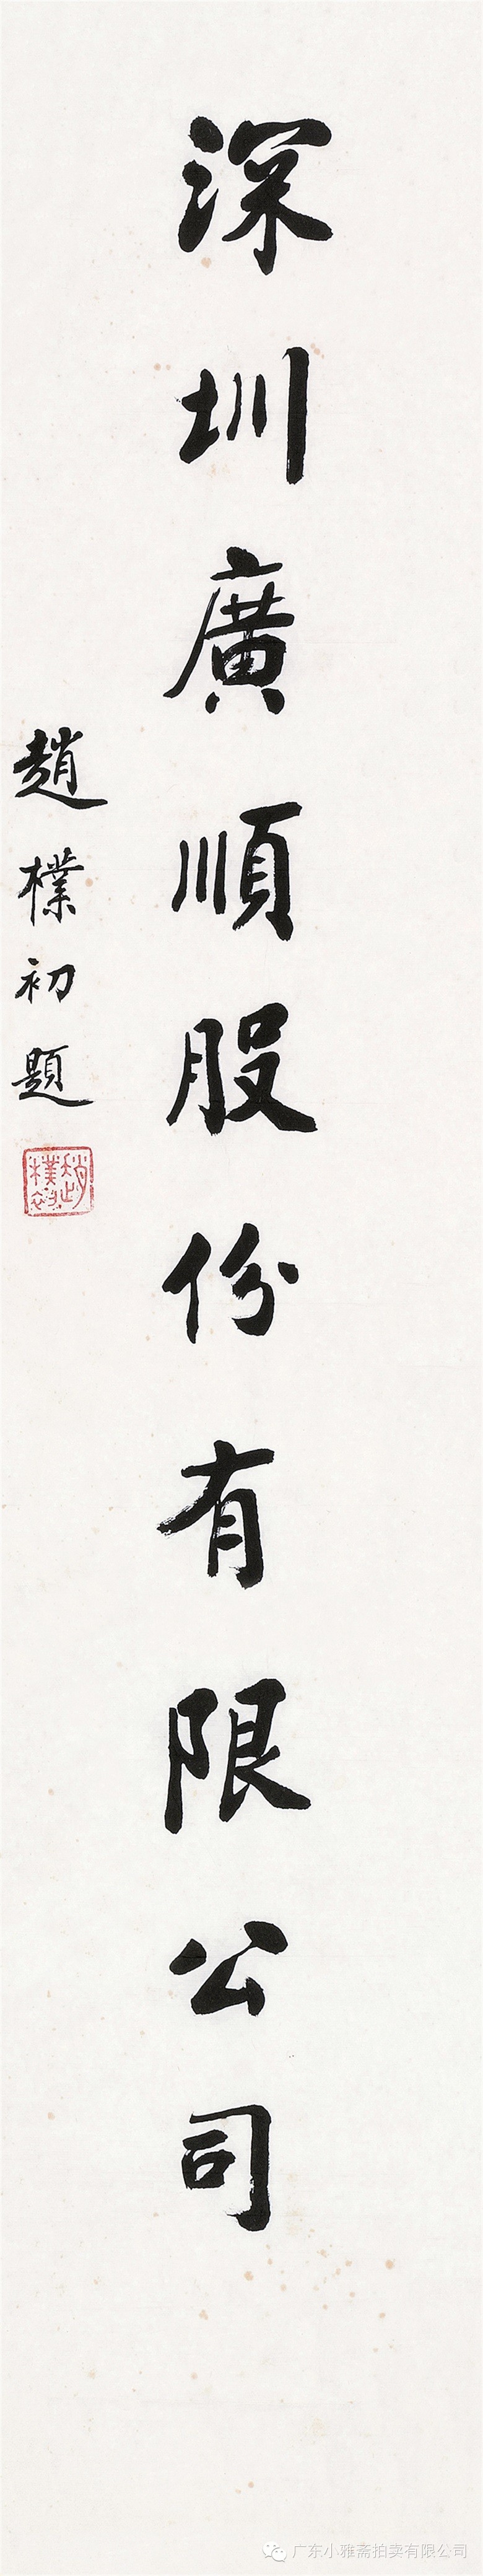 深圳廣順股份有限公司
趙樸初題
广东小雅斋拍卖有限公司